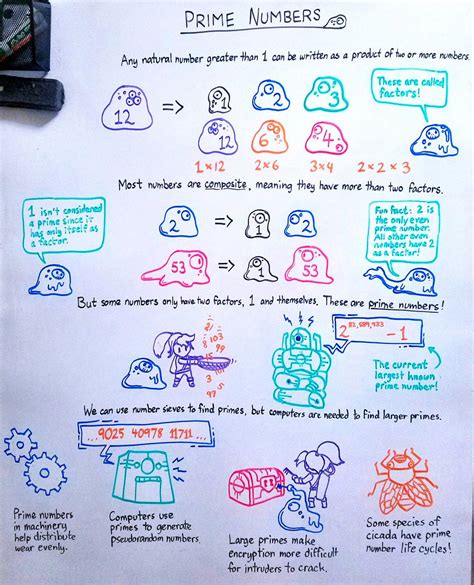 PRIME NUMBERS
Any natural number greater than 1 can be written as a product of two or more numbers.
12 => 1 2 3
12 6 4
1 x 12 2 x 6 3 x 4 2 x 2 x 3
These are called
factors!
Most numbers are composite, meaning they have more than two factors.
1 isn't considered
a prime since it
has only itself as
a factor.
2 => 1 2
53 => 1 53
Fun fact: 2 is
the only even
prime number.
All other even
numbers have 2
as a factor!
But some numbers only have two factors, 1 and themselves. These are prime numbers!
2^82,589,933 - 1
The current
largest known
prime number!
We can use number sieves to find primes, but computers are needed to find larger primes.
...9025 40978 11711...
Prime numbers
in machinery
help distribute
wear evenly.
Computers use
primes to generate
pseudorandom numbers.
Large primes make
encryption more difficult
for intruders to crack.
Some species of
cicada have prime
number life cycles!